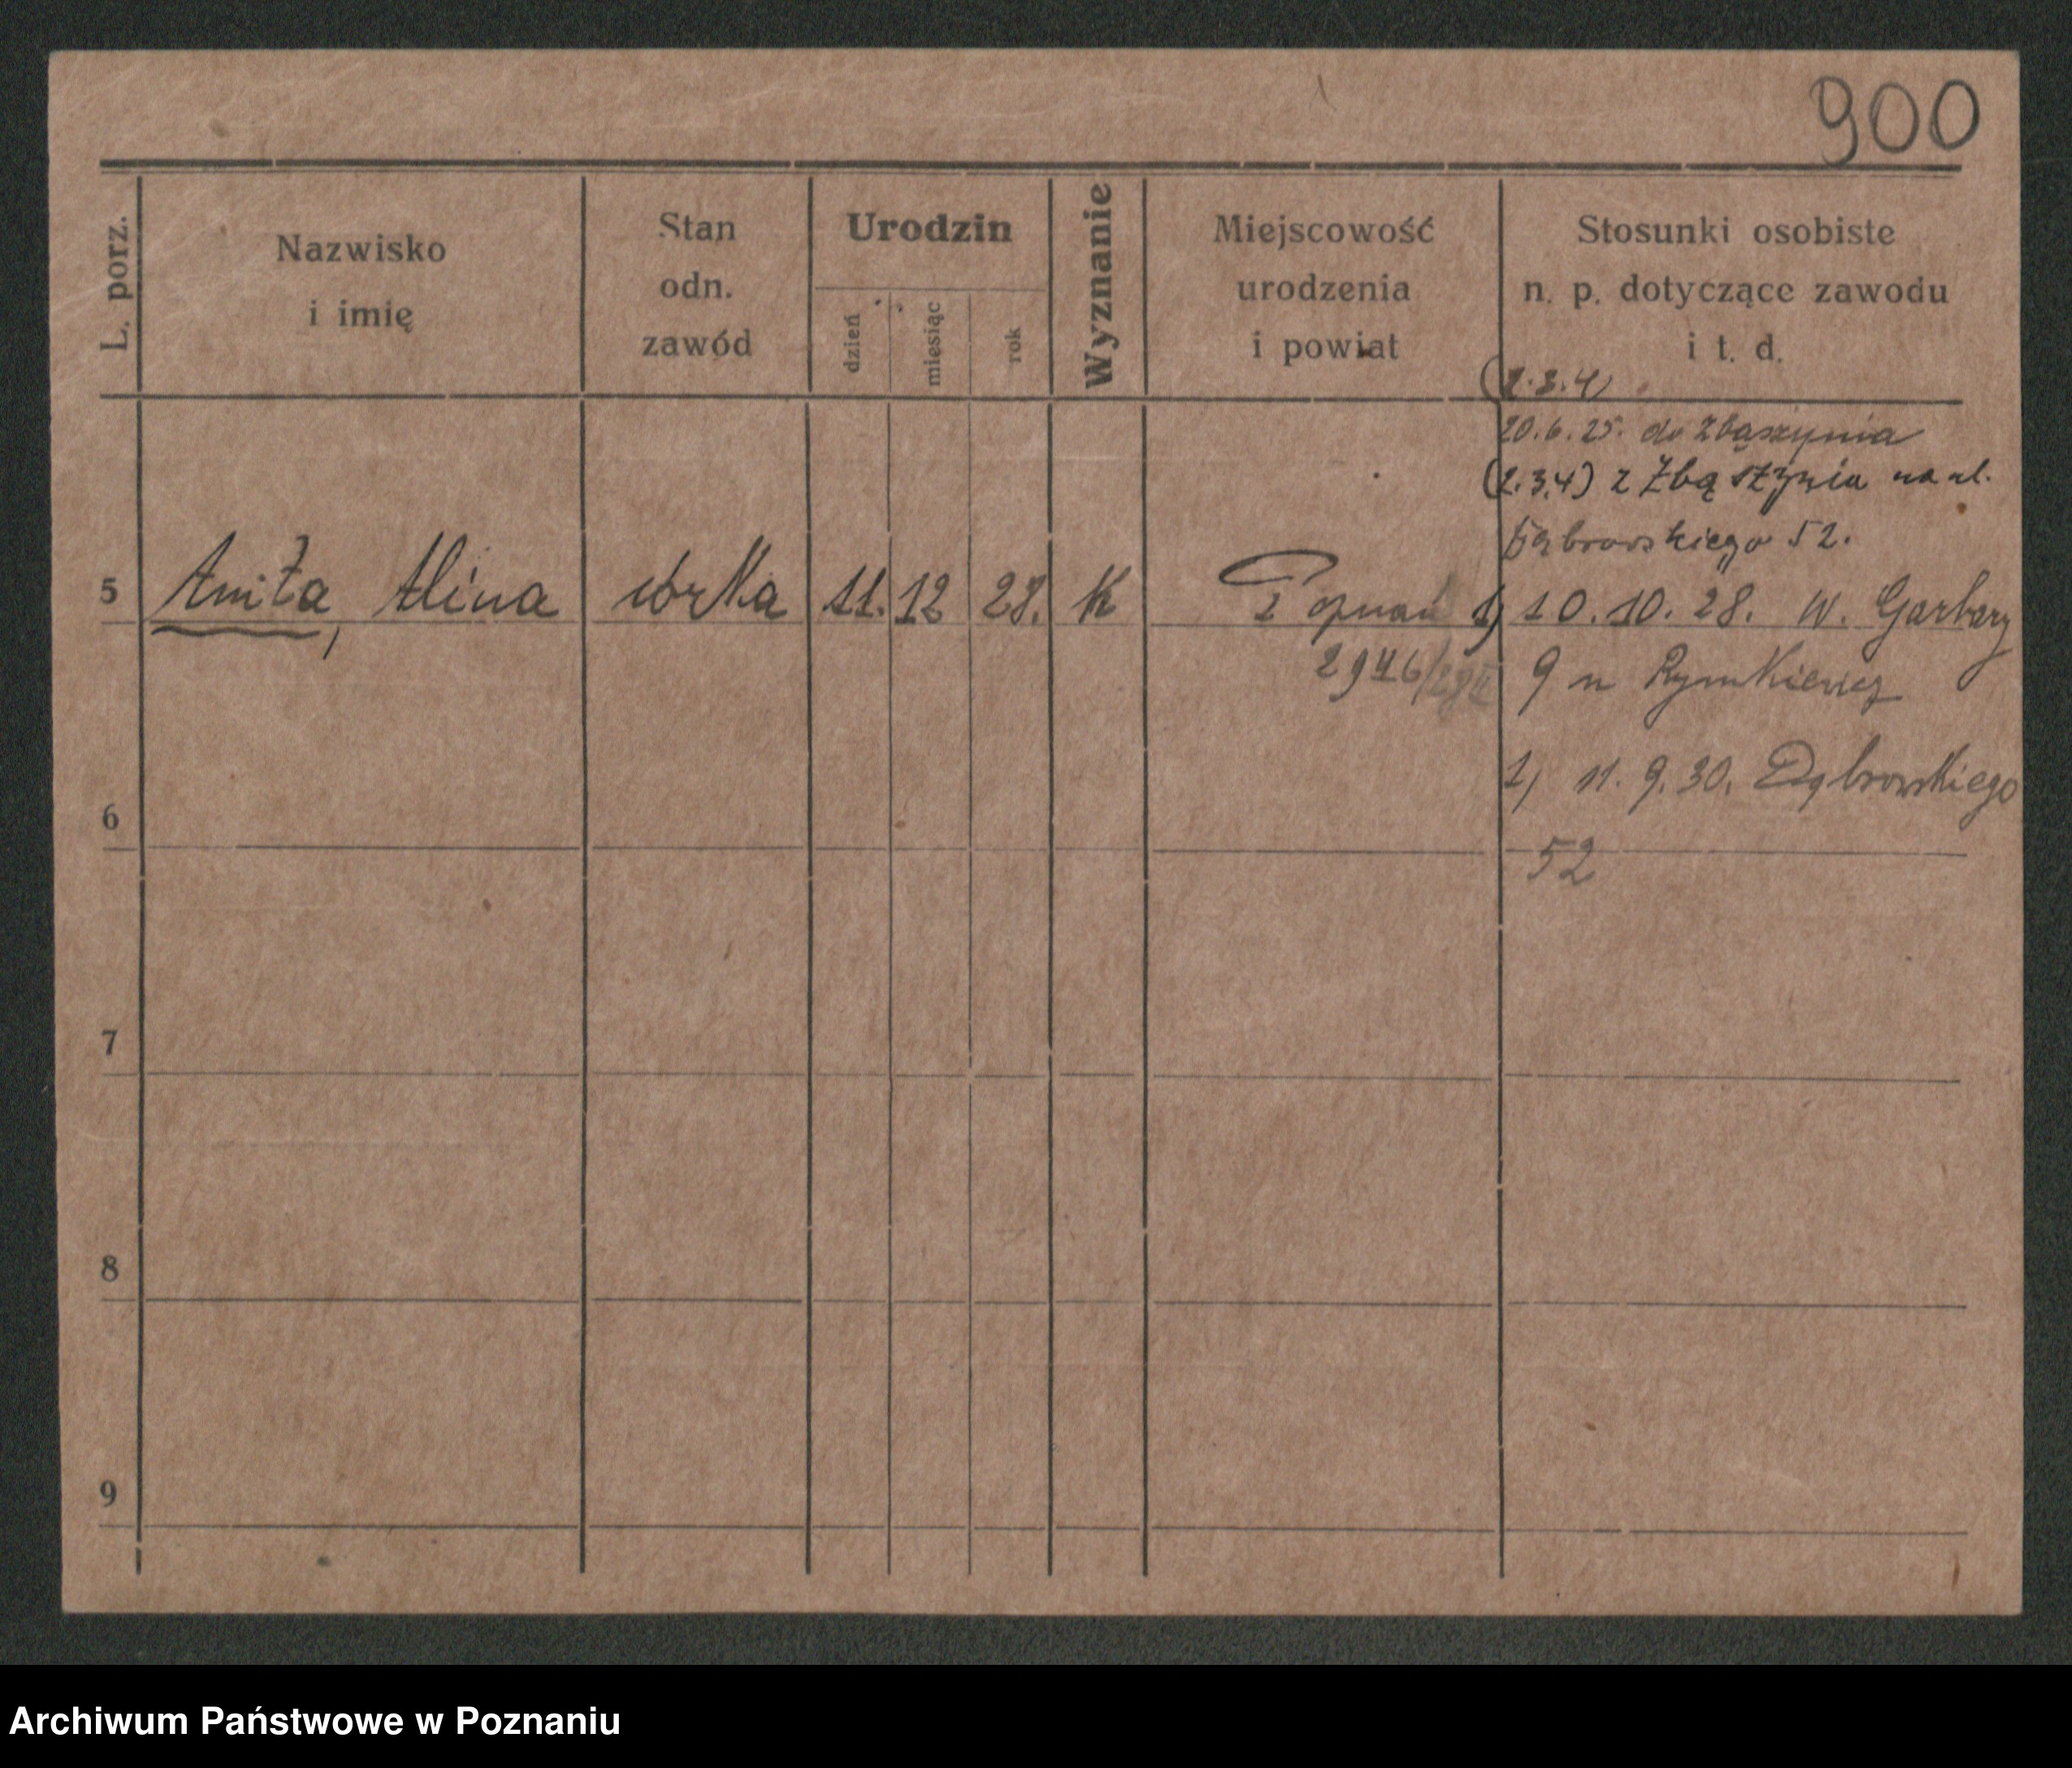 900
L. porz.
Nazwisko
i imię
Stan
odn.
zawód
Urodzin
dzień
miesiąc
rok
Wyznanie
Miejscowość
urodzenia
i powiat
Stosunki osobiste
n. p. dotyczące zawodu
i t. d.
(2.3.4)
20.6.25. do Zbąszynia
(2.3.4) z Zbąszynia na ul.
Dąbrowskiego 52.
5 Anita, Alina córka 11. 12 28. K Poznań 1) 10.10.28. W. Garbary
9 u Rymkiewicz
1) 11.9.30. Dąbrowskiego
52
6
7
8
9
Archiwum Państwowe w Poznaniu